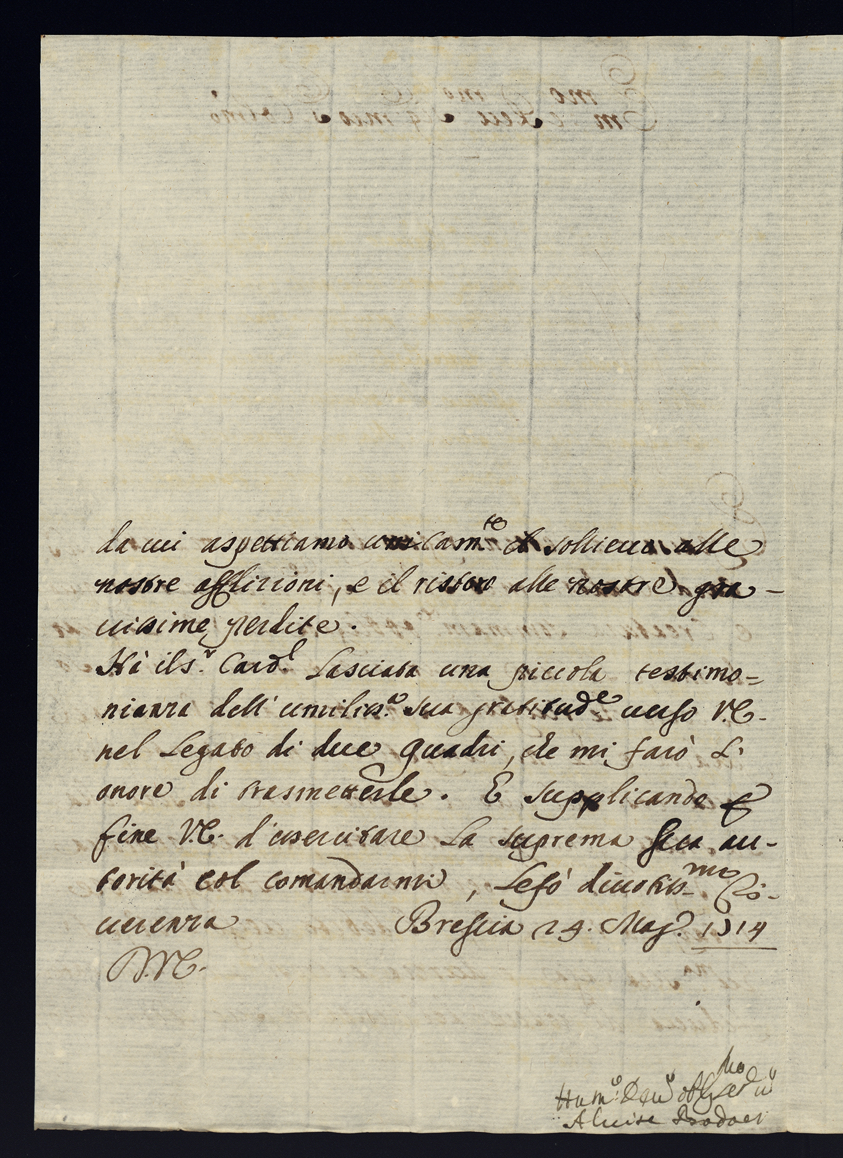 da cui aspettiamo unicam.te il sollieuo alle
nostre afflizioni, e il ristoro alle nostre gra-
uissime perdite.
Hà il S.r Card.l Lasciata una piccola testimo=
nianza dell' umiliss.a sua gratitud.e uerso V.E.
nel Legato di due Quadri, che mi farò L'
onore di trasmetterle. E supplicando
fine V.E. d'esercitare La suprema sua au-
torità col comandarmi, Le fò diuotiss.ma Ri-
uerenza Brescia 29. Mag.o 1714
D.V.E.
Hum.o Deu.o obl.mo Ser.u
Aluise